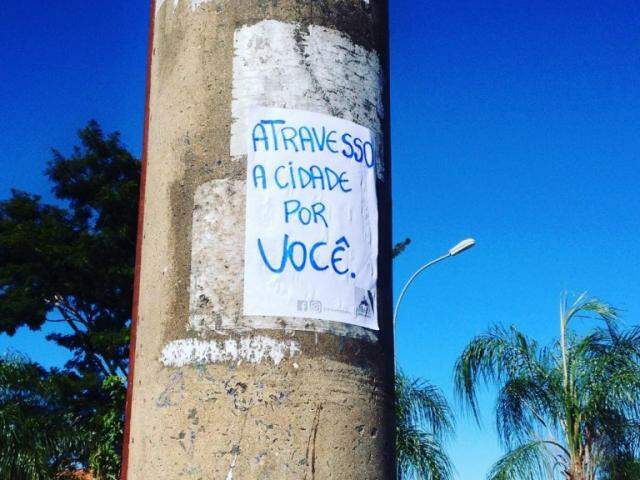 ATRAVESSO
A CIDADE
POR
VOCÊ.